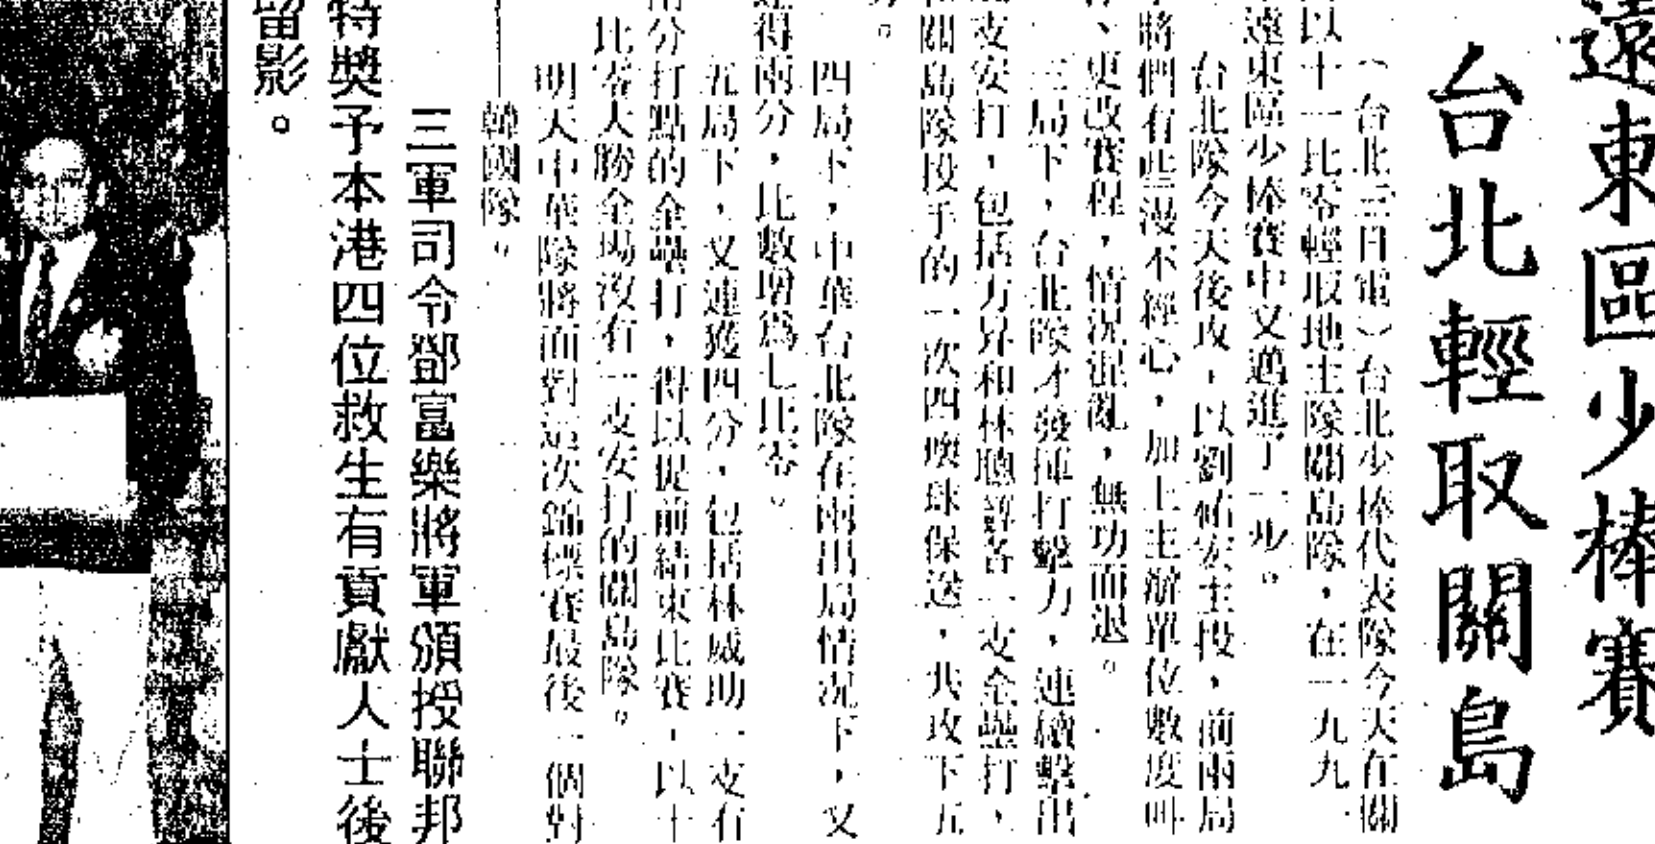 遠東區少棒賽
台北輕取關島
（台北三日電）台北少棒代表隊今天在關
以十一比零輕取地主隊關島隊，在一九九
遠東區少棒賽中又邁進了一步。
台北隊今天後攻，以劉祐宏主投，前兩局
將們有些漫不經心，加上主辦單位數度叫
、更改賽程，情況混亂，無功而退。
三局下，台北隊才發揮打擊力，連續擊出
支安打，包括方昇和林聰舜各一支全壘打，
和關島隊投手的一次四壞球保送，共攻下五
。
四局下，中華台北隊在兩出局情況下，又
連得兩分，比數增為七比零。
五局下，又連獲四分，包括林威助一支有
兩分打點的全壘打，得以提前結束比賽，以十
比零大勝全場沒有一支安打的關島隊。
明天中華隊將面對這次錦標賽最後一個對
——韓國隊。
三軍司令鄧富樂將軍頒授聯邦
特獎予本港四位救生有貢獻人士後
留影。